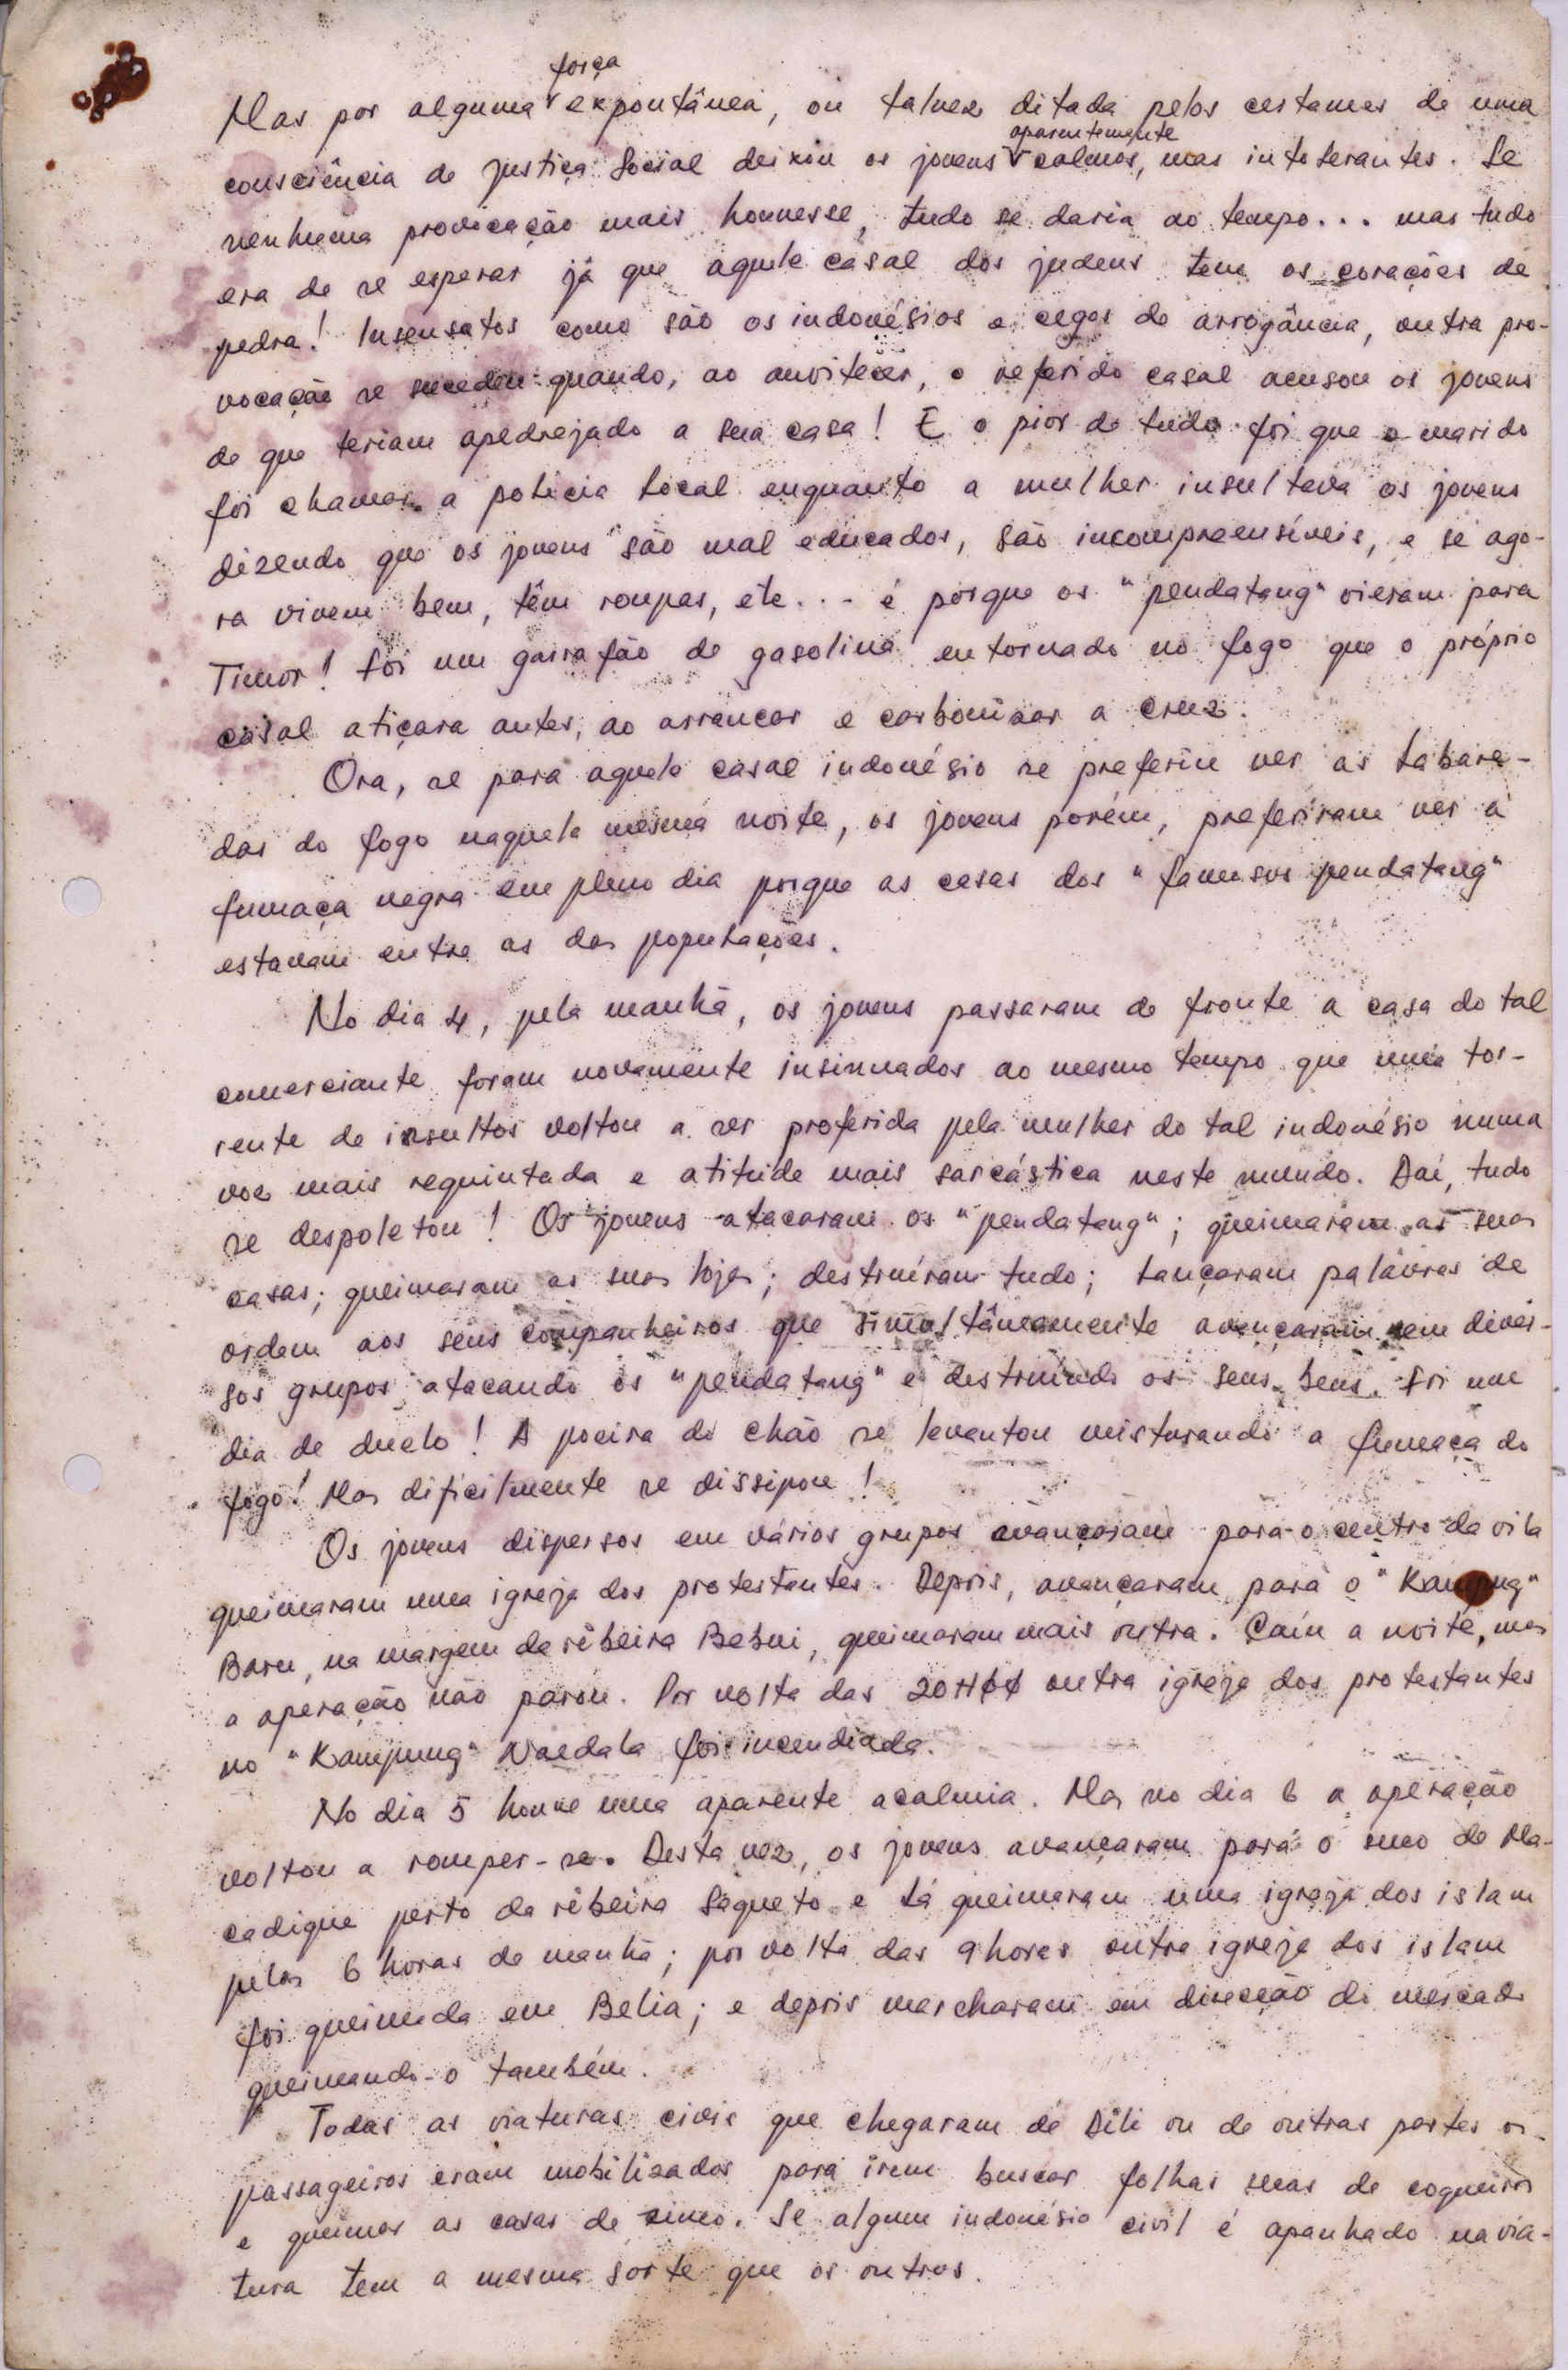 Mas por alguma força expontânea, ou talvez ditada pelos certames de uma
consciência de justiça social deixou os jovens aparentemente calmos, mas intolerantes. Se
nenhuma provocação mais houvesse, tudo se daria ao tempo... mas tudo
era de se esperar já que aquele casal dos judeus tem os corações de
pedra! Insensatos como são os indonésios e cegos de arrogância, outra pro-
vocação se sucedeu quando, ao anoitecer, o referido casal acusou os jovens
de que teriam apedrejado a sua casa! E o pior de tudo foi que o marido
foi chamar a polícia local enquanto a mulher insultava os jovens
dizendo que os jovens são mal educados, são incompreensíveis, e se ago-
ra vivem bem, têm roupas, etc... é porque os "pendatang" vieram para
Timor! Foi um garrafão de gasolina entornado no fogo que o próprio
casal atiçara antes, ao arrancar e carbonizar a cruz.
Ora, se para aquele casal indonésio se preferiu ver as labare-
das do fogo naquela mesma noite, os jovens porém, preferiram ver a
fumaça negra em pleno dia porque as casas dos "famosos pendatang"
estavam entre as das populações.
No dia 4, pela manhã, os jovens passaram de fronte a casa do tal
comerciante foram novamente insinuados ao mesmo tempo que uma tor-
rente de insultos voltou a ser proferida pela mulher do tal indonésio numa
voz mais requintada e atitude mais sarcástica neste mundo. Daí, tudo
se despoletou! Os jovens atacaram os "pendatang"; queimaram as suas
casas; queimaram as suas lojas; destruíram tudo; lançaram palavras de
ordem aos seus companheiros que simultâneamente avançaram em diver-
sos grupos atacando os "pendatang" e destruindo os seus bens. Foi um
dia de duelo! A poeira do chão se levantou misturando a fumaça do
fogo! Mas dificilmente se dissipou!
Os jovens dispersos em vários grupos avançaram para o centro da vila
queimaram uma igreja dos protestantes. Depois, avançaram para o "Kampung"
Baru, na margem da ribeira Bebui, queimaram mais outra. Caíu a noite, mas
a operação não parou. Por volta das 20H00 outra igreja dos protestantes
no "Kampung" Naedala foi incendiada.
No dia 5 houve uma aparente acalmia. Mas no dia 6 a operação
voltou a romper-se. Desta vez, os jovens avançaram para o suco de Ma-
cadique perto da ribeira Saqueto e lá queimaram uma igreja dos islam
pelas 6 horas da manhã; por volta das 9 horas outra igreja dos islam
foi queimada em Belia; e depois marcharam em direcção do mercado
queimando-o também.
Todas as viaturas civis que chegaram de Dili ou de outras partes os
passageiros eram mobilizados para irem buscar folhas secas de coqueiros
e queimar as casas de zinco. Se algum indonésio civil é apanhado na via-
tura tem a mesma sorte que os outros.